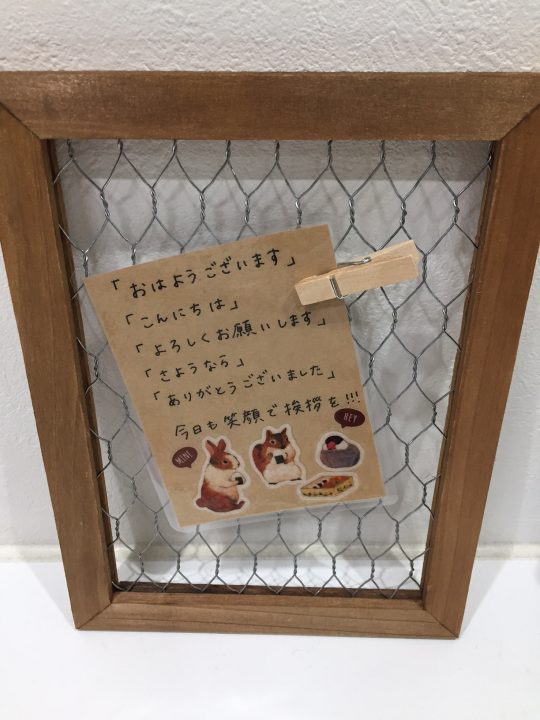 「おはようございます」
「こんにちは」
「よろしくお願いします」
「さようなら」
「ありがとうございました」
今日も笑顔で挨拶を!!!
MINE
HEY